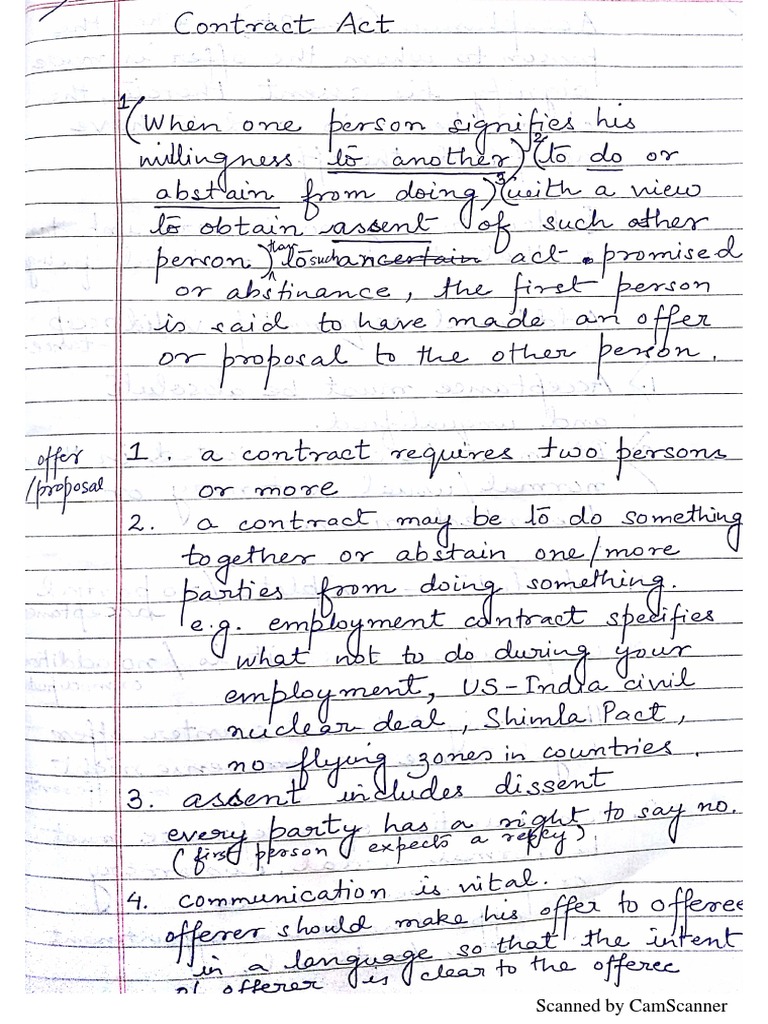 Contract Act
1(When one person signifies his
willingness to another) 2(to do or
abstain from doing) 3(with a view
to obtain assent of such other
person) to such an certain act promised
or abstinance, the first person
is said to have made an offer
or proposal to the other person.
offer
/proposal
1. a contract requires two persons
or more
2. a contract may be to do something
together or abstain one/more
parties from doing something.
e.g. employment contract specifies
what not to do during your
employment, US-India civil
nuclear deal, Shimla Pact,
no flying zones in countries.
3. assent includes dissent
every party has a right to say no.
(first person expects a reply).
4. communication is vital.
offerer should make his offer to offeree
in a language so that the intent
of offerer is clear to the offeree
Scanned by CamScanner